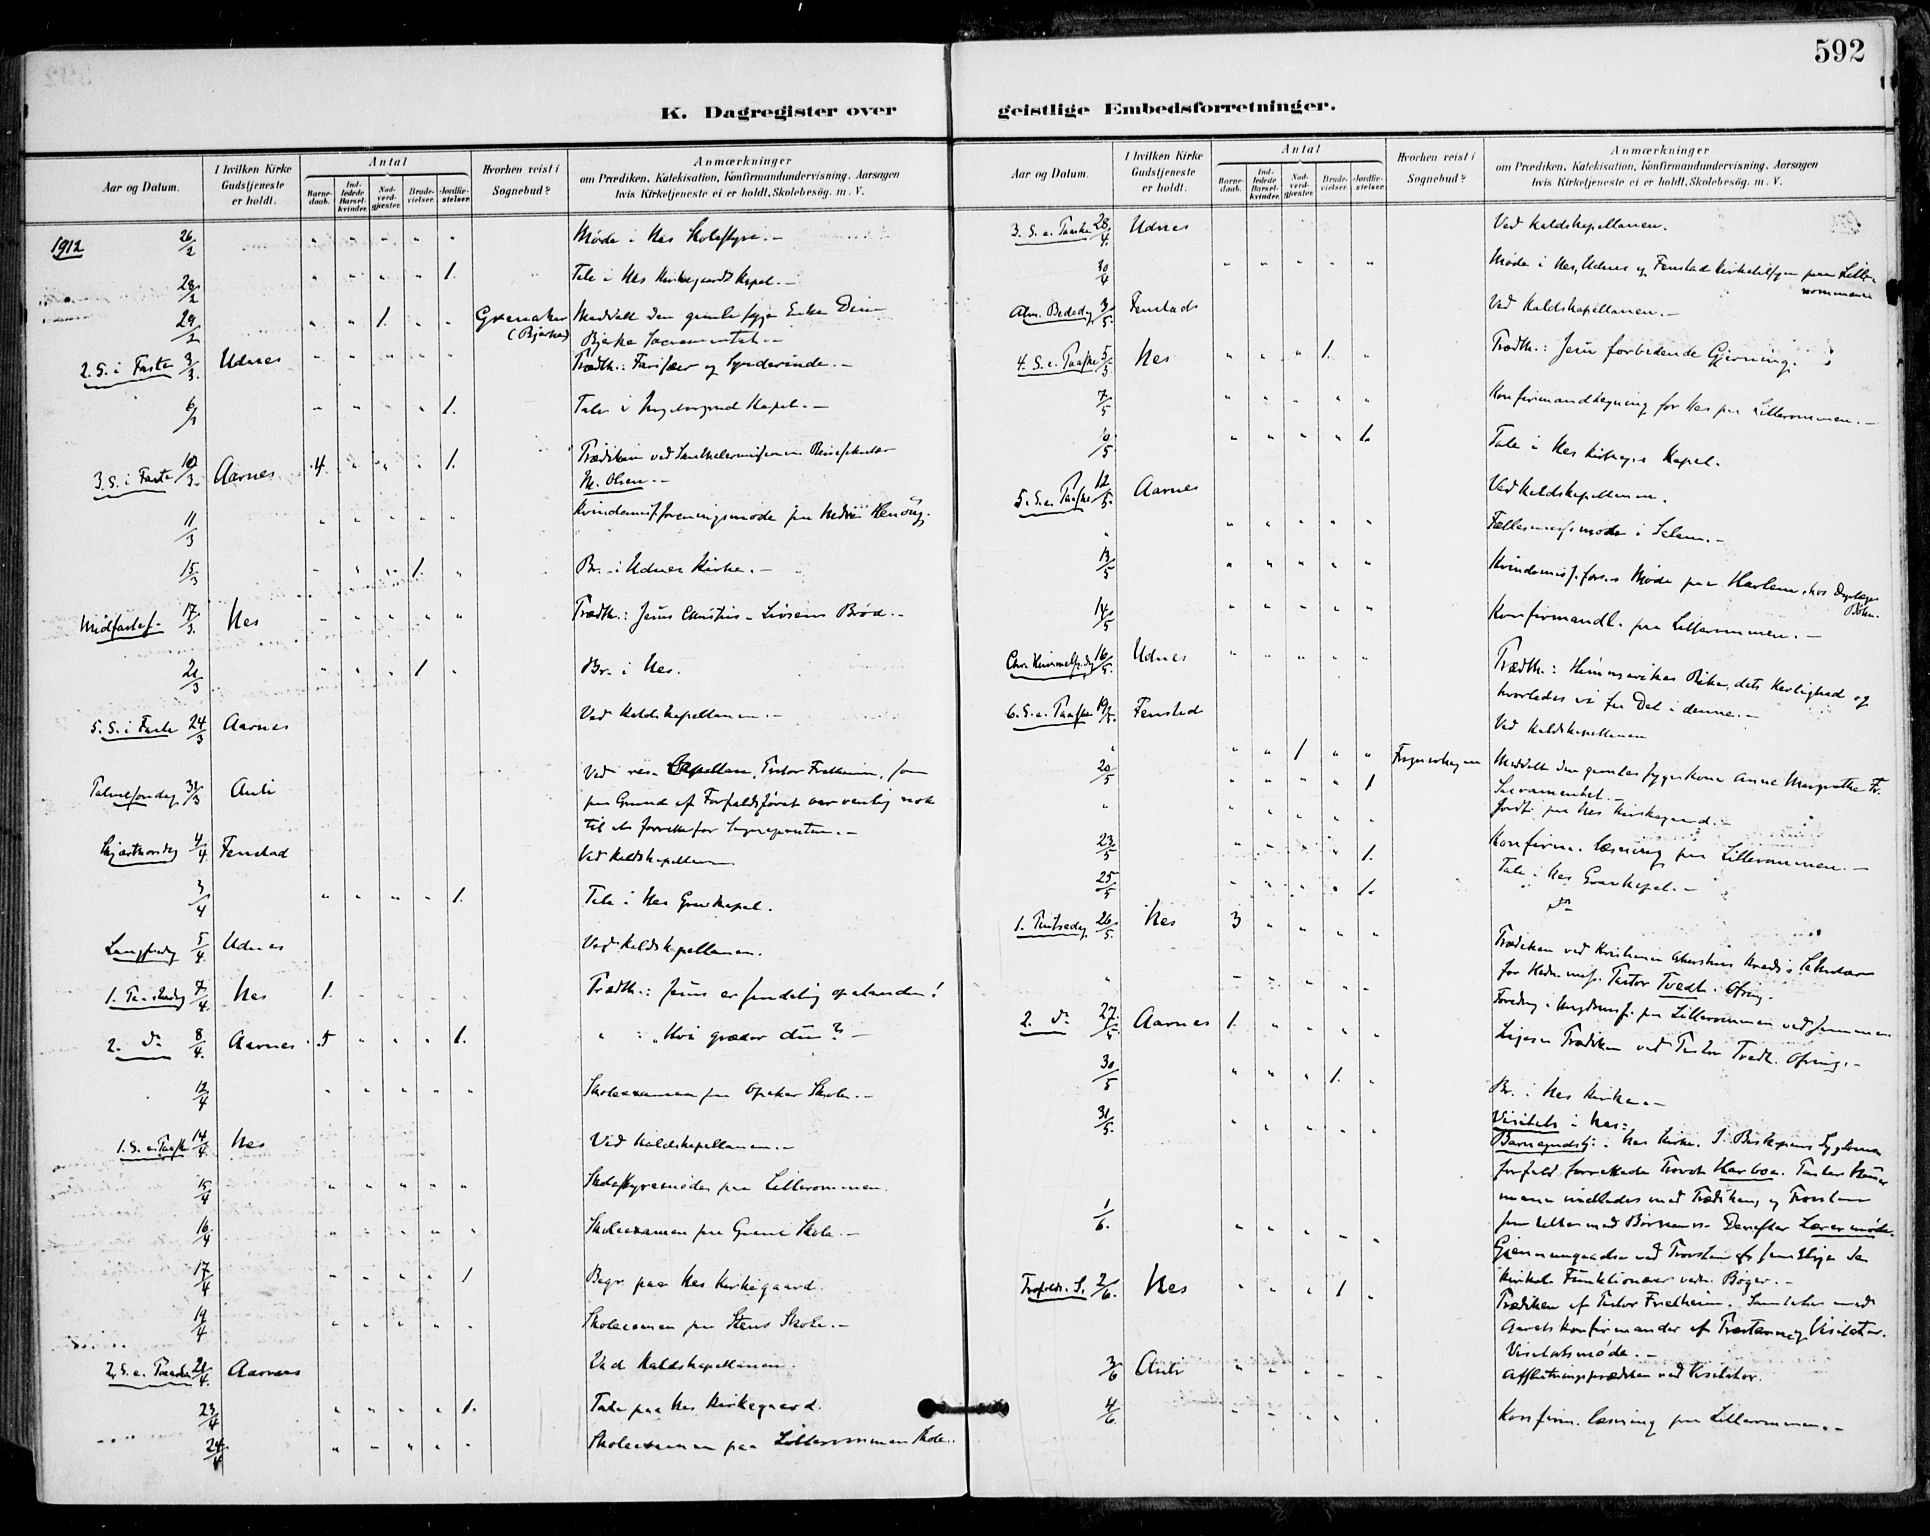 592
K. Dagregister over geistlige Embedsforretninger.
Aar og Datum.
I hvilken Kirke Gudstjeneste er holdt.
Antal
Barne-daab.
Ind-ledede Barsel-kvinder.
Nad-verd-gjæster.
Brude-vielser.
Jordfæ-stelser.
Hvorhen reist i Sognebud?
Anmærkninger
om Prædiken, Katekisation, Konfirmandundervisning, Aarsagen
hvis Kirketjeneste ei er holdt, Skolebesög. m. V.
1912 26/2 " " " " " Møde i Nes Skolestyre. —
28/2 " " " " 1. Tale i Nes Kirkegaards Kapel. —
29/2 " " 1. " " Meddelt den gamle syge Enke
(Bjerke) Bjerke Sacramentet. —
2. S. i Faste 3/3. Udnes " " " " " Prædth.: Farisæer og Synderinde. —
6/3 " " " " 1. Tale i Kapel. —
3. S. i Faste 10/3. Aarnes 4. " " " 1. Prædiken ved
M. Olsen. —
11/3 " " " " "
15/3 " " " 1. " Br. i Udnes Kirke. —
Midfastes. 17/3. Nes " " " " " Prædth.: Jesus Christus — Livsens Brød. —
21/3 " " " 1 " Br. i Nes.
5. S. i Faste 24/3 Aarnes Ved Kaldskapellanen. —
Palmesøndag 31/3 Auli Ved res. Kapellan, Pastor Fretheim, som
paa Grund af Forfaldsføret var venlig nok
til at forrette for Sognepræsten. —
Skjærthorsdag 4/4 Fenstad Ved Kaldskapellanen
3/4 " " " " 1. Tale i Nes Gravkapel.
Langfredag 5/4. Udnes Ved Kaldskapellanen.
1. Paaskedag 7/4. Nes 1. " " " " Prædth.: Jesus er sandelig opstanden!
2. do 8/4. Aarnes 5 " " " 1. " : "Hvi græder du?" —
12/4 " " " " " Skoleexamen paa Opaker Skole. —
1. S. e. Paaske 14/4. Nes Ved Kaldskapellanen. —
15/4 " " " " " Skolestyremøde paa Lillerommen.
16/4 " " " " " Skoleexamen paa Skole. —
17/4 " " " " 1 Begr. paa Nes Kirkegaard.
19/4 " " " " " Skoleexamen paa Stens Skole. —
2. S. e. Paaske 21/4. Aarnes Ved Kaldskapellanen.
23/4 " " " " 1. Tale paa Nes Kirkegaard.
24/4 " " " " " Skoleexamen paa Lillerommen Skole.
Aar og Datum.
I hvilken Kirke Gudstjeneste er holdt.
Antal
Barne-daab.
Ind-ledede Barsel-kvinder.
Nad-verd-gjester.
Brude-vielser.
Jordfæ-stelser.
Hvorhen reist i Sognebud?
Anmærkninger
om Prædiken, Katekisation, Konfirmandundervisning, Aarsagen
hvis Kirketjeneste ei er holdt, Skolebesög. m. V.
3. S. e. Paaske 28/4. Udnes Ved Kaldskapellanen.
30/4 " " " " " Møde i Nes, Udnes og Fenstad Kirketilsyn paa Lille-
rommen
Alm. Bededag 3/5. Fenstad Ved Kaldskapellanen. —
4. S. e. Paaske 5/5 Nes " " " 1. " Prædth.: Jesu forbedende Gjerning.
7/5 " " " " " Konfirmandlæsning for Nes paa Lillerommen. —
10/5 " " " " 1. Tale i Nes Kirkeg.s Kapel.
5. S. e. Paaske 12/5. Aarnes Ved Kaldskapellanen.
" " " " " " Fællesmøde i Salem. —
13/5 " " " " " Kvindemisf. Møde paa Harlem, hos
14/5 " " " " " Konfirmandl. paa Lillerommen. —
Chr. Himmelf.dag 16/5. Udnes " " " " " Prædth.: Himmeriges Rike, dets Herlighed og
hvorledes vi faar Del i denne. —
6. S. e. Paaske 19/5. Fenstad Ved Kaldskapellanen
" " " 1 " " Meddelt den gamle syge kone Anne Margrethe
Sacramentet. —
20/5 " " " " 1 Jordf. paa Nes Kirkegaard. —
" " " " " " Konfirm. læsning paa Lillerommen. —
23/5 " " " " 1. Tale i Nes Gravkapel. —
25/5 " " " " 1. " do
1. Pintsedag 26/5. Nes 3 " " " " Prædiken ved Sekretær
for Hedn.mis. Pastor Tvedt. Ofring.
" " " " " " Foredrag i paa Lillerommen ved samme.
2. do 27/5 Aarnes 1. " " " " Ligesaa Prædiken ved Pastor Tvedt. Ofring. —
30/5 " " " 1. " Br. i Nes Kirke. —
31/5. " " " " " Visitats i Nes:
Barnegudstj. i Nes Kirke. I Biskopens Sygdoms-
forfald forrettede Provst Harboe. Pastor
indledes med Prædiken, og Provsten
Børnene. Derefter Lærermøde.
1/6. " " " " " Gjennemgaaelse ved Provsten af
Kirkel. Funktionærer Bøger. —
Trefoldh. S. 2/6. Nes " " " 1 " Prædiken af Pastor Fretheim. Samtale med
Aarets Konfirmander af Præsten og Visitator.
Visitatsmøde. —
3/6 Auli " " " " " Afslutningsprædiken ved Visitator.
4/6. " " " " " Konfirm. læsning paa Lillerommen. —